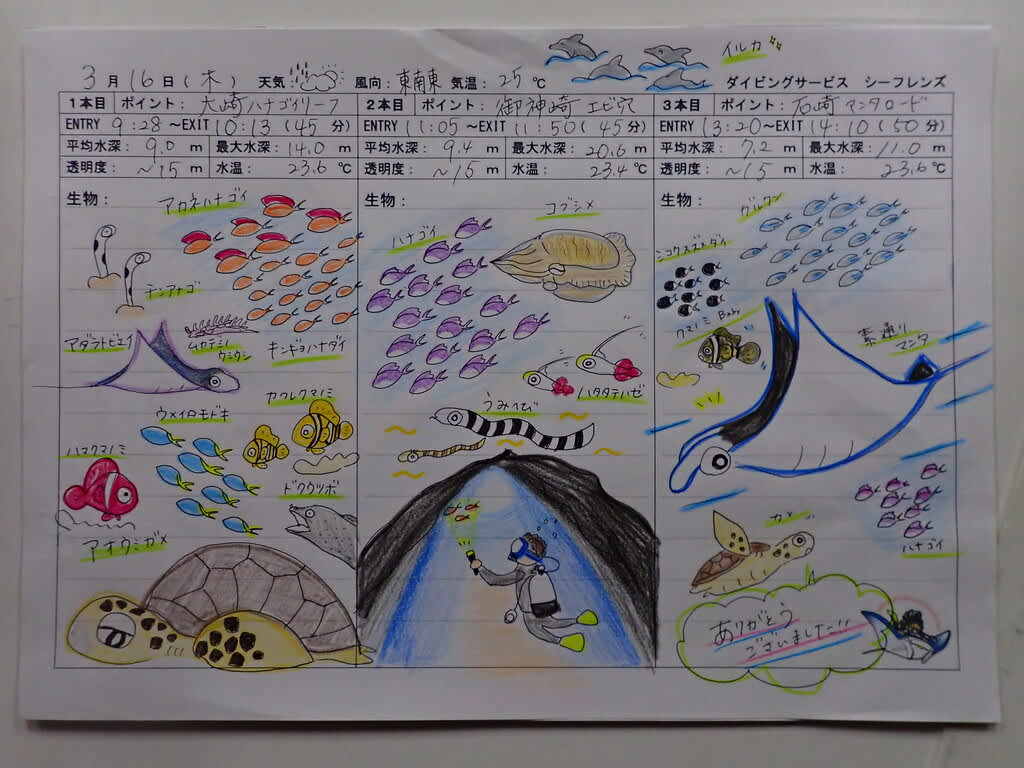 イルカ
3月16日(木) 天気: 風向:東南東 気温:25℃ ダイビングサービス シーフレンズ
1本目 ポイント:大崎ハナゴイリーフ
ENTRY 9:28~EXIT 10:13(45分)
平均水深: 9.0 m 最大水深: 14.0 m
透明度: ~15 m 水温: 23.6 ℃
生物:
アカネハナゴイ
チンアナゴ
マダラトビエイ
ムカデミノ
ウミウシ
キンギョハナダイ
ウメイロモドキ
カクレクマノミ
ハマクマノミ
ドクウツボ
アオウミガメ
2本目 ポイント:御神崎 エビ穴
ENTRY 11:05~EXIT 11:50(45分)
平均水深: 9.4 m 最大水深: 20.6 m
透明度: ~15 m 水温: 23.4 ℃
生物:
コブシメ
ハナゴイ
ハタタテハゼ
うみへび
3本目 ポイント:石崎 マンタロード
ENTRY 13:20~EXIT 14:10(50分)
平均水深: 7.2 m 最大水深: 11.0 m
透明度: ~15 m 水温: 23.6 ℃
生物:
グルクン
クマノミ Baby
素通り
マンタ
ハナゴイ
カメ
ありがとう
ございました!!